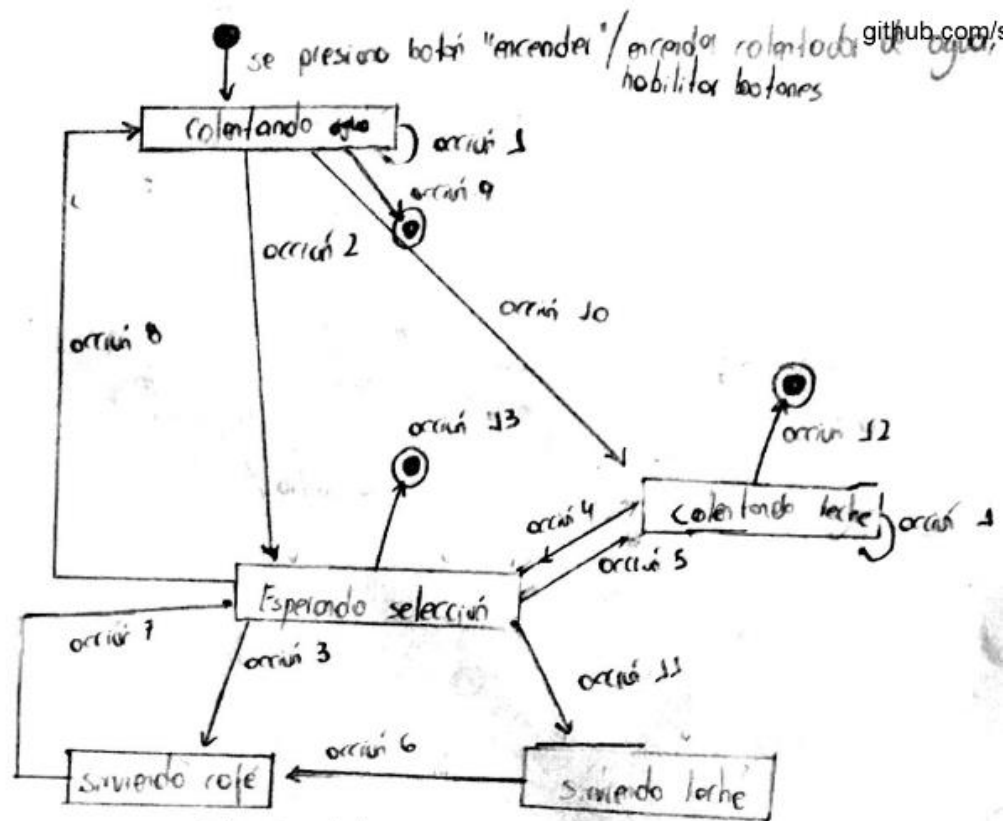 github.com/s
se presiono botón "encender" / encender calentador de agua,
habilitar botones
Calentando agua
acción 1
acción 9
acción 2
acción 10
acción 8
acción 13
acción 12
Calentando leche
acción 1
acción 4
acción 5
Esperando selección
acción 7
acción 3
acción 11
acción 6
Sirviendo café
Sirviendo leche